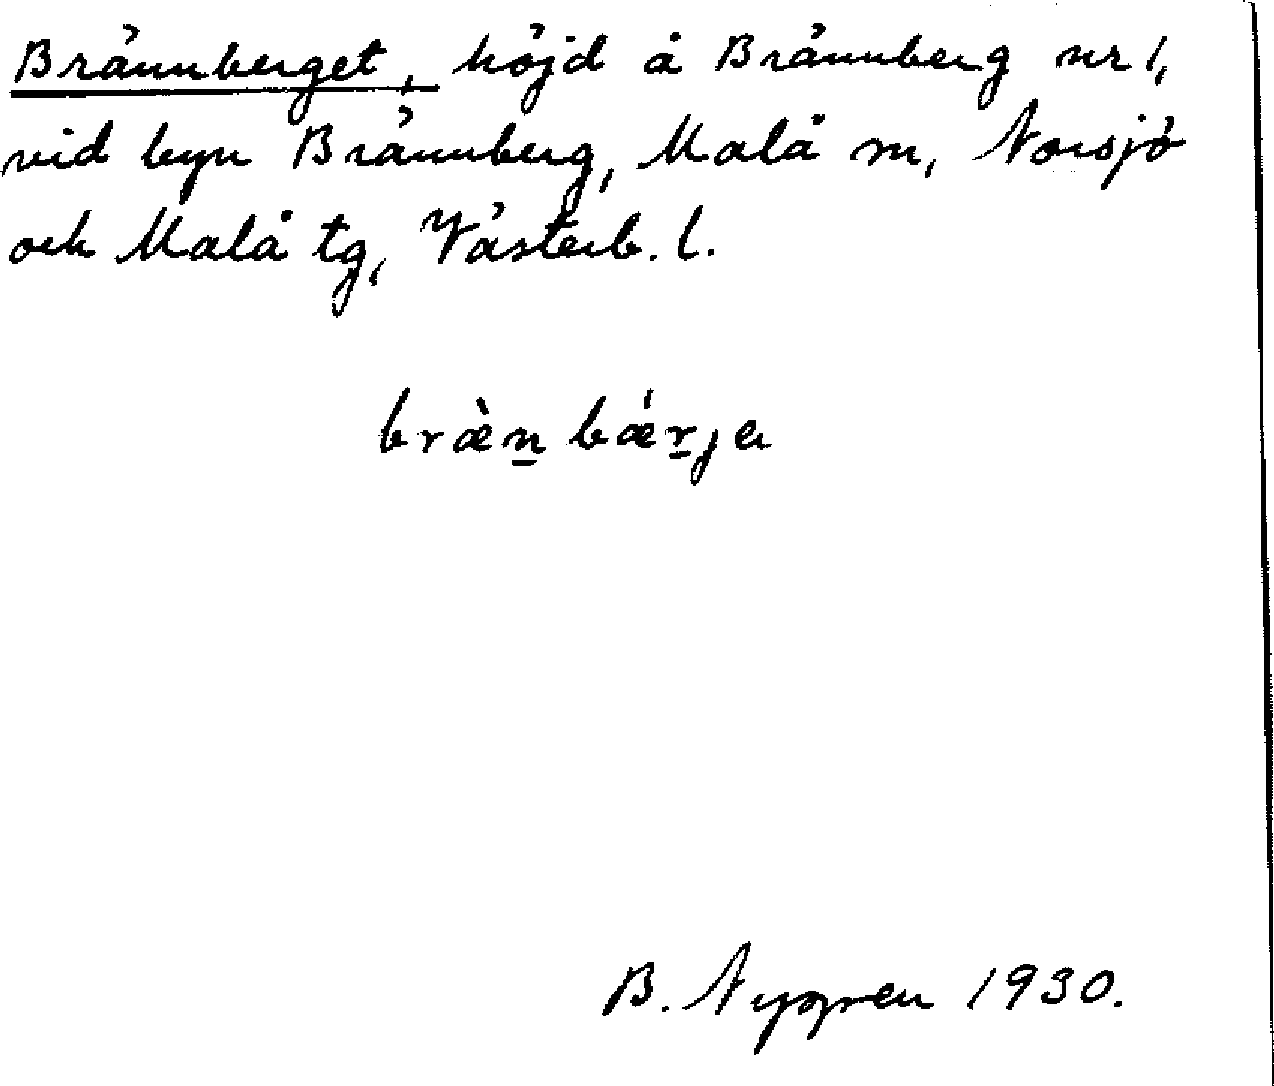 Brännberget, höjd å Brännberg nr 1,
vid byn Brännberg, Malå sn, Norsjö
och Malå tg, Västerb. l.
bræ̀n̲ bǽr̲ja
B. Nygren 1930.